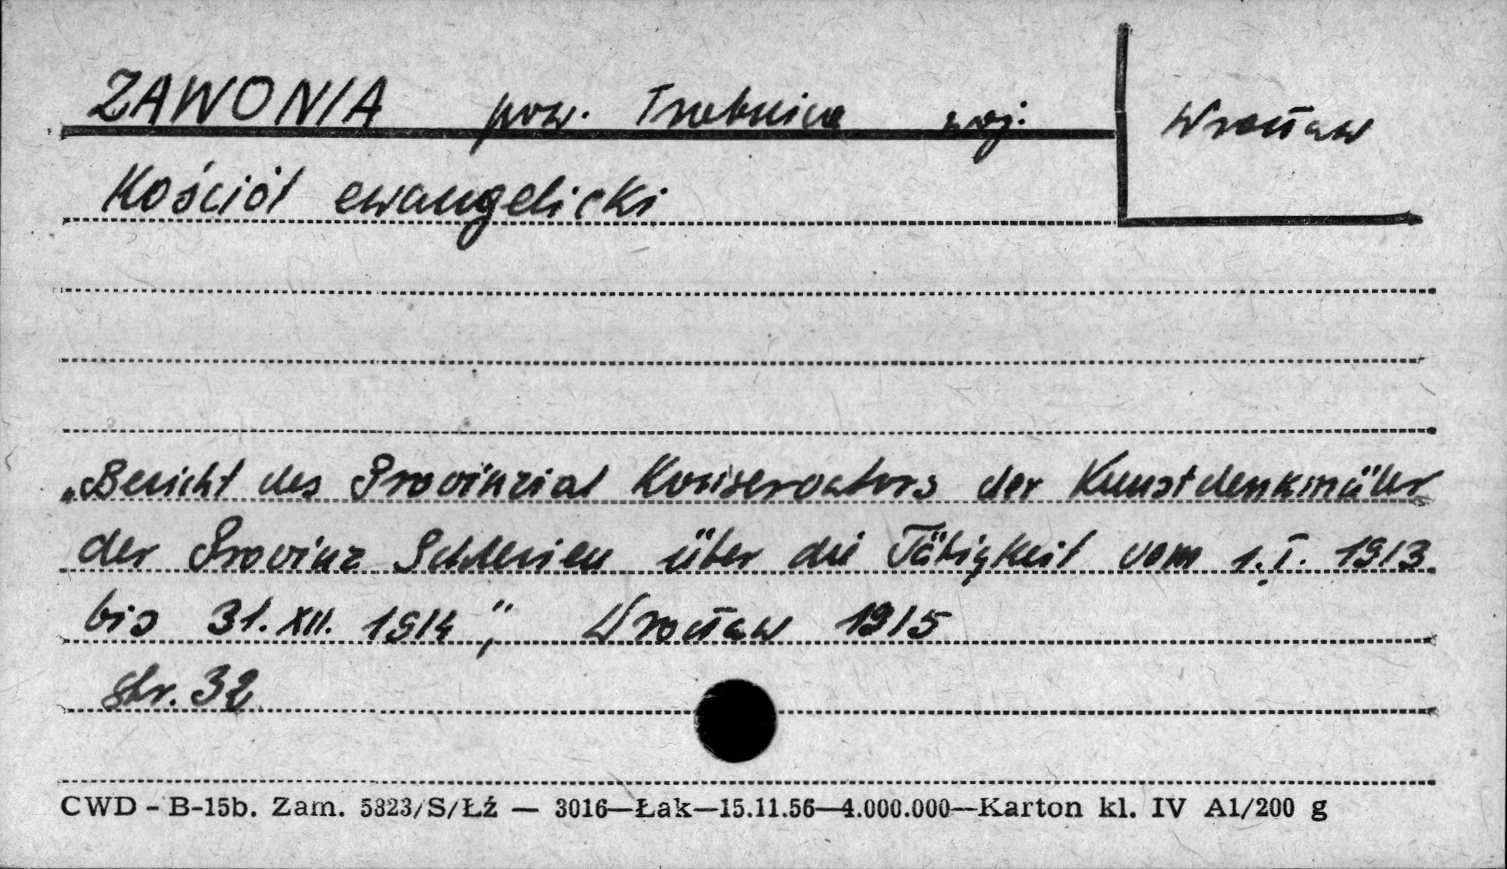 ZAWONIA pow. Trzebnica woj. Wrocław
Kościół ewangelicki
„Bericht des Provinzial Konservators der Kunstdenkmäler
der Provinz Schlesien über die Tätigkeit vom 1.I. 1913
bis 31.XII. 1914", Wrocław 1915
str. 32
CWD - B-15b. Zam. 5823/S/Łź — 3016—Łak—15.11.56—4.000.000—Karton kl. IV A1/200 g